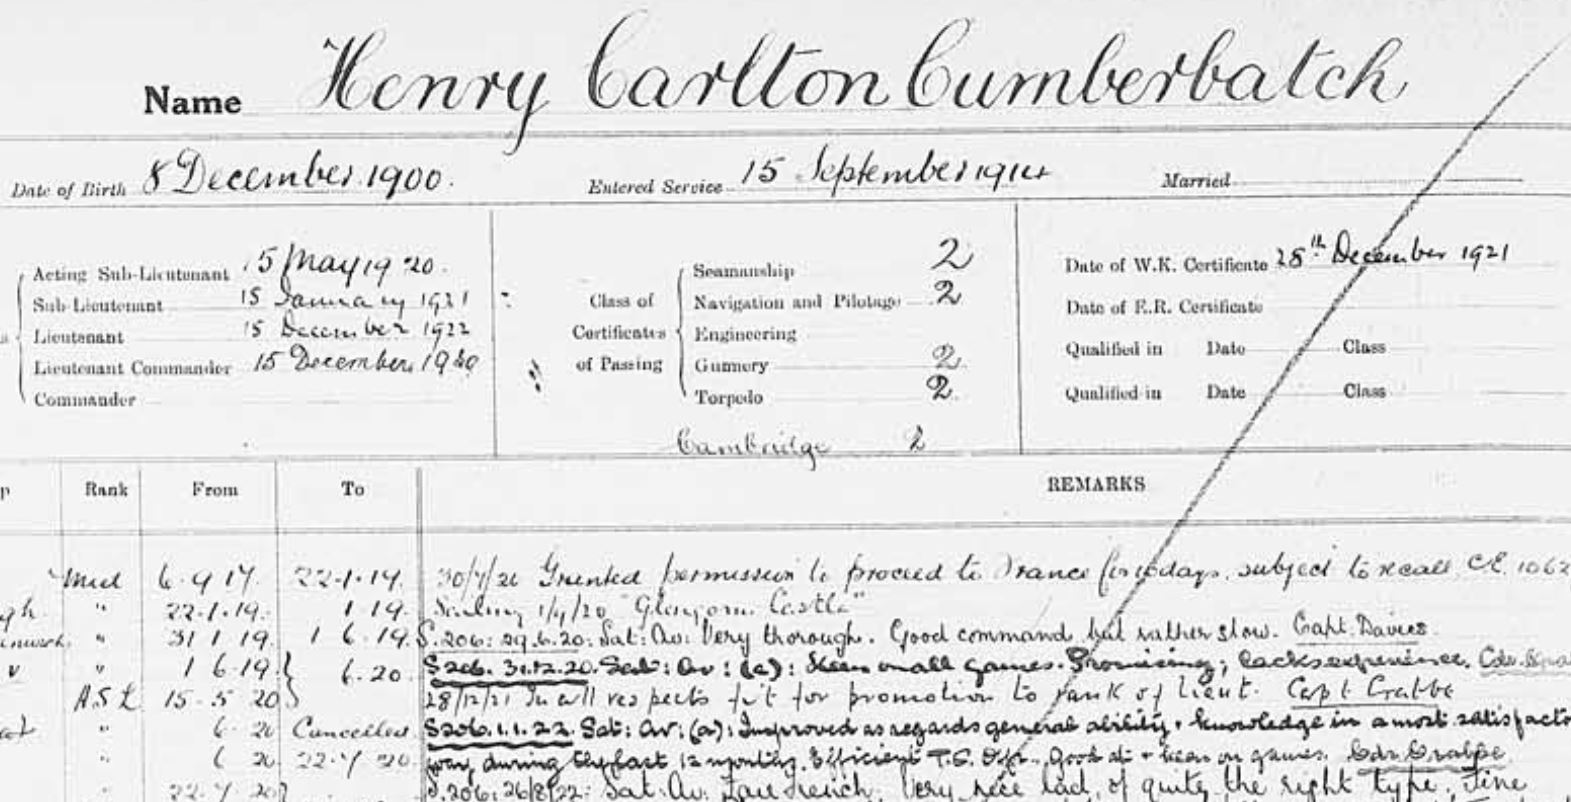 Name Henry Carlton Cumberbatch
Date of Birth 8 December 1900. Entered Service 15 September 1914 Married
Acting Sub-Lieutenant 15 May 1920.
Sub-Lieutenant 15 January 1921
Lieutenant 15 December 1922
Lieutenant Commander 15 December 1930
Commander
Class of Certificates of Passing
Seamanship 2
Navigation and Pilotage 2
Engineering
Gunnery 2
Torpedo 2
Cambridge 2
Date of W.K. Certificate 28th December 1921
Date of E.R. Certificate
Qualified in Date Class
Qualified in Date Class
Rank From To REMARKS
Mid 6.9.17. 22.1.19. 30/7/20 Granted permission to proceed to France for days, subject to recall, C.E. 1062
" 22.1.19. 1 19. 1/4/20 "Castle"
" 31 1 19. 1 6.19. S.206: 29.6.20: Sat: Av: Very thorough. Good command but rather slow. Capt. Davies.
" 1 6.19. 6.20. S206. 31.12.20. Sat: Av: (a): Keen on all games. Promising; lacks experience. Cdr.
A.S.L. 15.5 20 28/12/21 In all respects fit for promotion to rank of Lieut. Capt Crabbe
" 6.20 Cancelled S206.1.1.22. Sat: Av: (a): Improved as regards general ability & knowledge in a most satisfacto
" 6 20 22.7 20. way, during the past 12 months. Efficient T.C. Offr. Good at & keen on games. Cdr Crabbe
" 22.7 20 S.206: 26/8/22: Sat: Av: French. Very nice lad, of quite the right type, Fine